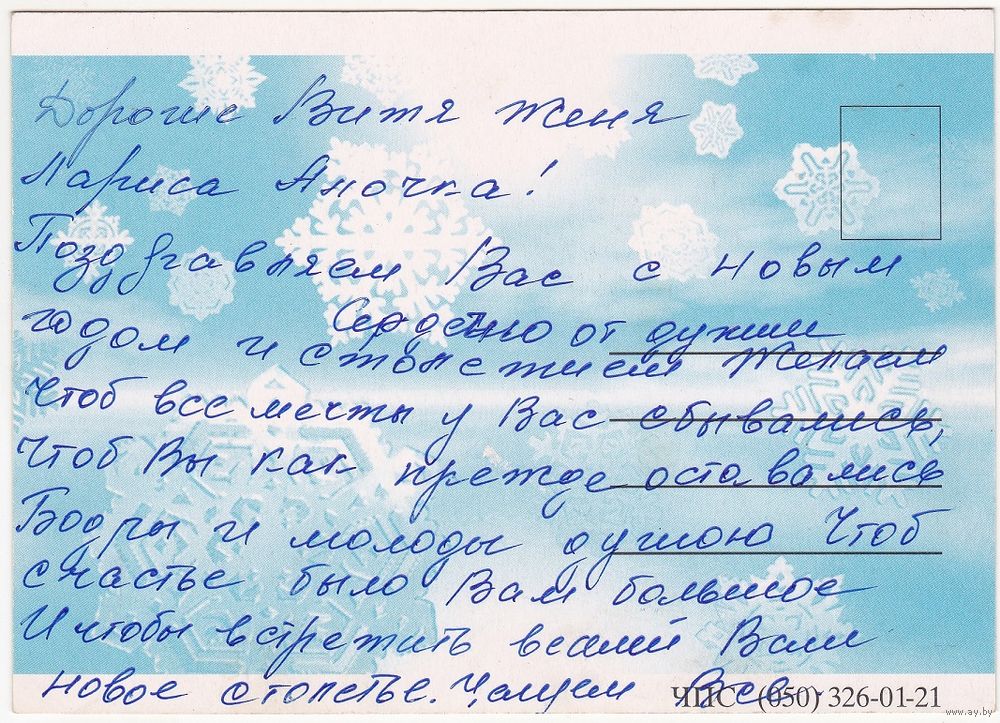 Дорогие Витя Женя
Лариса Аночка!
Поздравляем Вас с новым
годом и столетием
Сердечно от души Желаем
Чтоб все мечты у Вас сбывались,
Чтоб Вы как прежде оставались
Бодры и молоды душою Чтоб
счастье было Вам большое
И чтобы встретить весели Вам
новое столетье. Целуем Всех.
ЧПС (050) 326-01-21
www.ay.by